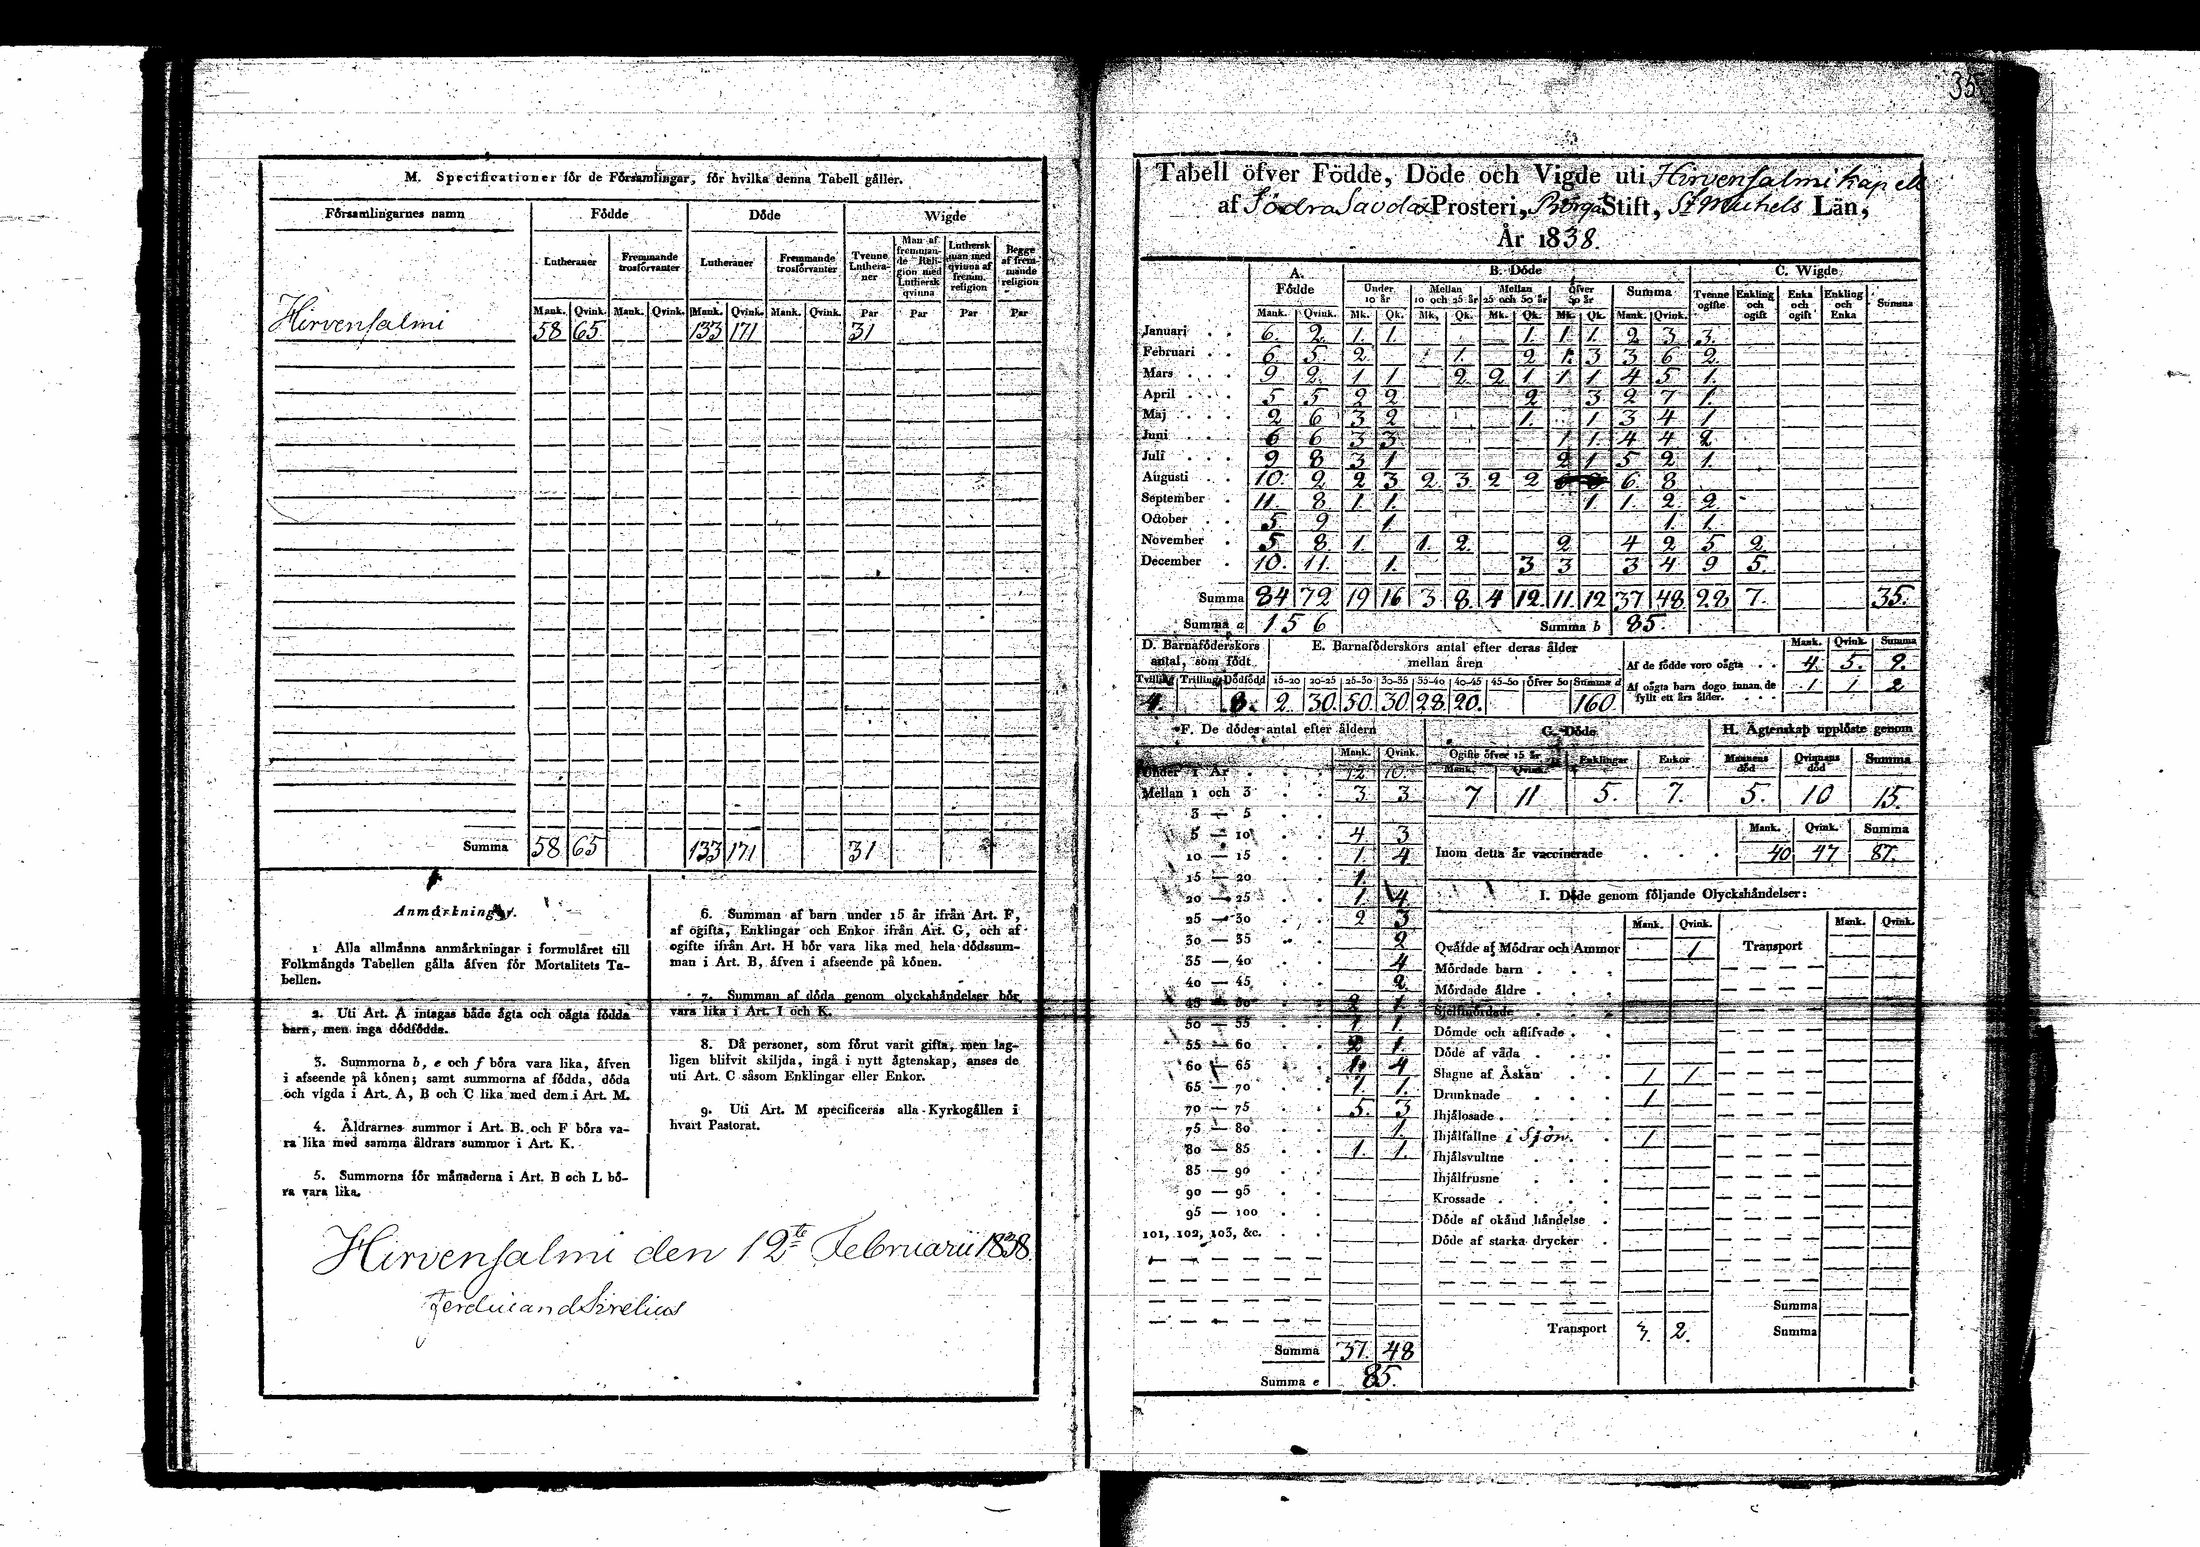 35.
M. Specificationer för de Församlingar, för hvilka denna Tabell gäller.
Församlingarnes namn Födde Döde Wigde
Lutheraner Fremmande trosförvanter Lutheraner Fremmande trosförvanter Tvenne Lutheraner Man af fremmande Religion med Luthersk qvinna Luthersk man med qvinna af fremm. religion Begge af fremmande religion
Mank. Qvink. Mank. Qvink. Mank. Qvink. Mank. Qvink. Par Par Par Par
Hirvensalmi 58 65 133 171 31
Summa 58 65 133 171 31
Anmärkningar.
1 Alla allmänna anmärkningar i formuläret till
Folkmängds Tabellen gälla äfven för Mortalitets Ta-
bellen.
2. Uti Art. A intagas både ägta och oägta födda
barn, men inga dödfödda.
3. Summorna b, e och f böra vara lika, äfven
i afseende på könen; samt summorna af födda, döda
och vigda i Art. A, B och C lika med dem i Art. M.
4. Åldrarnes summor i Art. B. och F böra va-
ra lika med samma åldrars summor i Art. K.
5. Summorna för månaderna i Art. B och L bö-
ra vara lika.
6. Summan af barn under 15 år ifrån Art. F,
af ogifta, Enklingar och Enkor ifrån Art. G, och af
ogifte ifrån Art. H bör vara lika med hela dödssum-
man i Art. B, äfven i afseende på könen.
7. Summan af döda genom olyckshändelser bör
vara lika i Art. I och K.
8. Då personer, som förut varit gifta, men lag-
ligen blifvit skiljda, ingå i nytt ägtenskap, anses de
uti Art. C såsom Enklingar eller Enkor.
9. Uti Art. M specificeras alla Kyrkogällen i
hvart Pastorat.
Hirvensalmi den 12te Februarii 1838
Ferdinand Sirelius
Tabell öfver Födde, Döde och Vigde uti Hirvensalmi Kapell
af Södra Savolax Prosteri, Borgå Stift, St Michels Län,
År 1838.
A. Födde B. Döde C. Wigde
Under 10 år Mellan 10 och 25 år Mellan 25 och 50 år Öfver 50 år Summa Tvenne ogifte Enkling och ogift Enka och ogift Enkling och Enka Summa
Mank. Qvink. Mk. Qk. Mk. Qk. Mk. Qk. Mk. Qk. Mank. Qvink.
Januari 6. 2. 1. 1. 1. 1. 1. 2 3 3.
Februari 6. 5. 2. 1. 2 1. 3 3 6 2.
Mars 9 2. 1 1 2 2 1 1 1 4 5 1.
April 5 5 2 2 2 3 2 7 1.
Maj 2 6 3 2 1. 1 3 4 1
Juni 6 6 3 3 1 1. 4 4 2
Juli 9 8 3 1 2 1 5 2 1.
Augusti 10. 2 2 3 2 3 2 2 6. 8
September 11. 8 1. 1. 1 1. 2 2
October 5 9 1. 1. 1.
November 5 8. 1. 1. 2. 2 4 2 5 2
December 10. 11. 1. 3 3 3 4 9 5.
Summa 84 72 19 16 3 8. 4 12. 11. 12 37 48 28 7. 35.
Summa a 156 Summa b 85
D. Barnaföderskors antal, som födt E. Barnaföderskors antal efter deras ålder mellan åren Mank. Qvink. Summa
Tvilling Trilling Dödfödd 15-20 20-25 25-30 30-35 35-40 40-45 45-50 Öfver 50 Summa d
Af de födde voro oägta 4. 5. 9.
Af oägta barn dogo innan de fyllt ett års ålder. 1 1 2
4. 8. 2. 30. 50. 30. 28. 20. 160
F. De dödes antal efter åldern G. Döde H. Ägtenskap upplöste genom
Mank. Qvink. Ogifte öfver 15 år Enklingar Enkor Mannens död Qvinnans död Summa
Mank. Qvink.
Under 1 År 12 10.
Mellan 1 och 3 3 3 7 11 5. 7. 5. 10 15.
3 — 5
5 — 10 4 3
10 — 15 1. 4
15 — 20 1.
20 — 25 1 4
25 — 30 2 3
30 — 35 2
35 — 40 4
40 — 45 2
45 — 50 2 1
50 — 55 1 1.
55 — 60 2 1.
60 — 65 1. 4
65 — 70 1 1.
70 — 75 5. 3
75 — 80 1.
80 — 85 1. 1.
85 — 90
90 — 95
95 — 100
101, 102, 103, &c.
Summa 37. 48
Summa e 85.
Mank. Qvink. Summa
Inom detta år vaccinerade 40 47 87.
I. Döde genom följande Olyckshändelser:
Mank. Qvink. Mank. Qvink.
Qväfde af Mödrar och Ammor 1 Transport
Mördade barn
Mördade äldre
Sjelfmördade
Dömde och aflifvade
Döde af våda
Slagne af Åskan 1 1
Drunknade 1
Ihjälosade
Ihjälfallne i Sjön. 1
Ihjälsvultne
Ihjälfrusne
Krossade
Döde af okänd händelse
Döde af starka drycker
Summa
Transport 3. 2. Summa